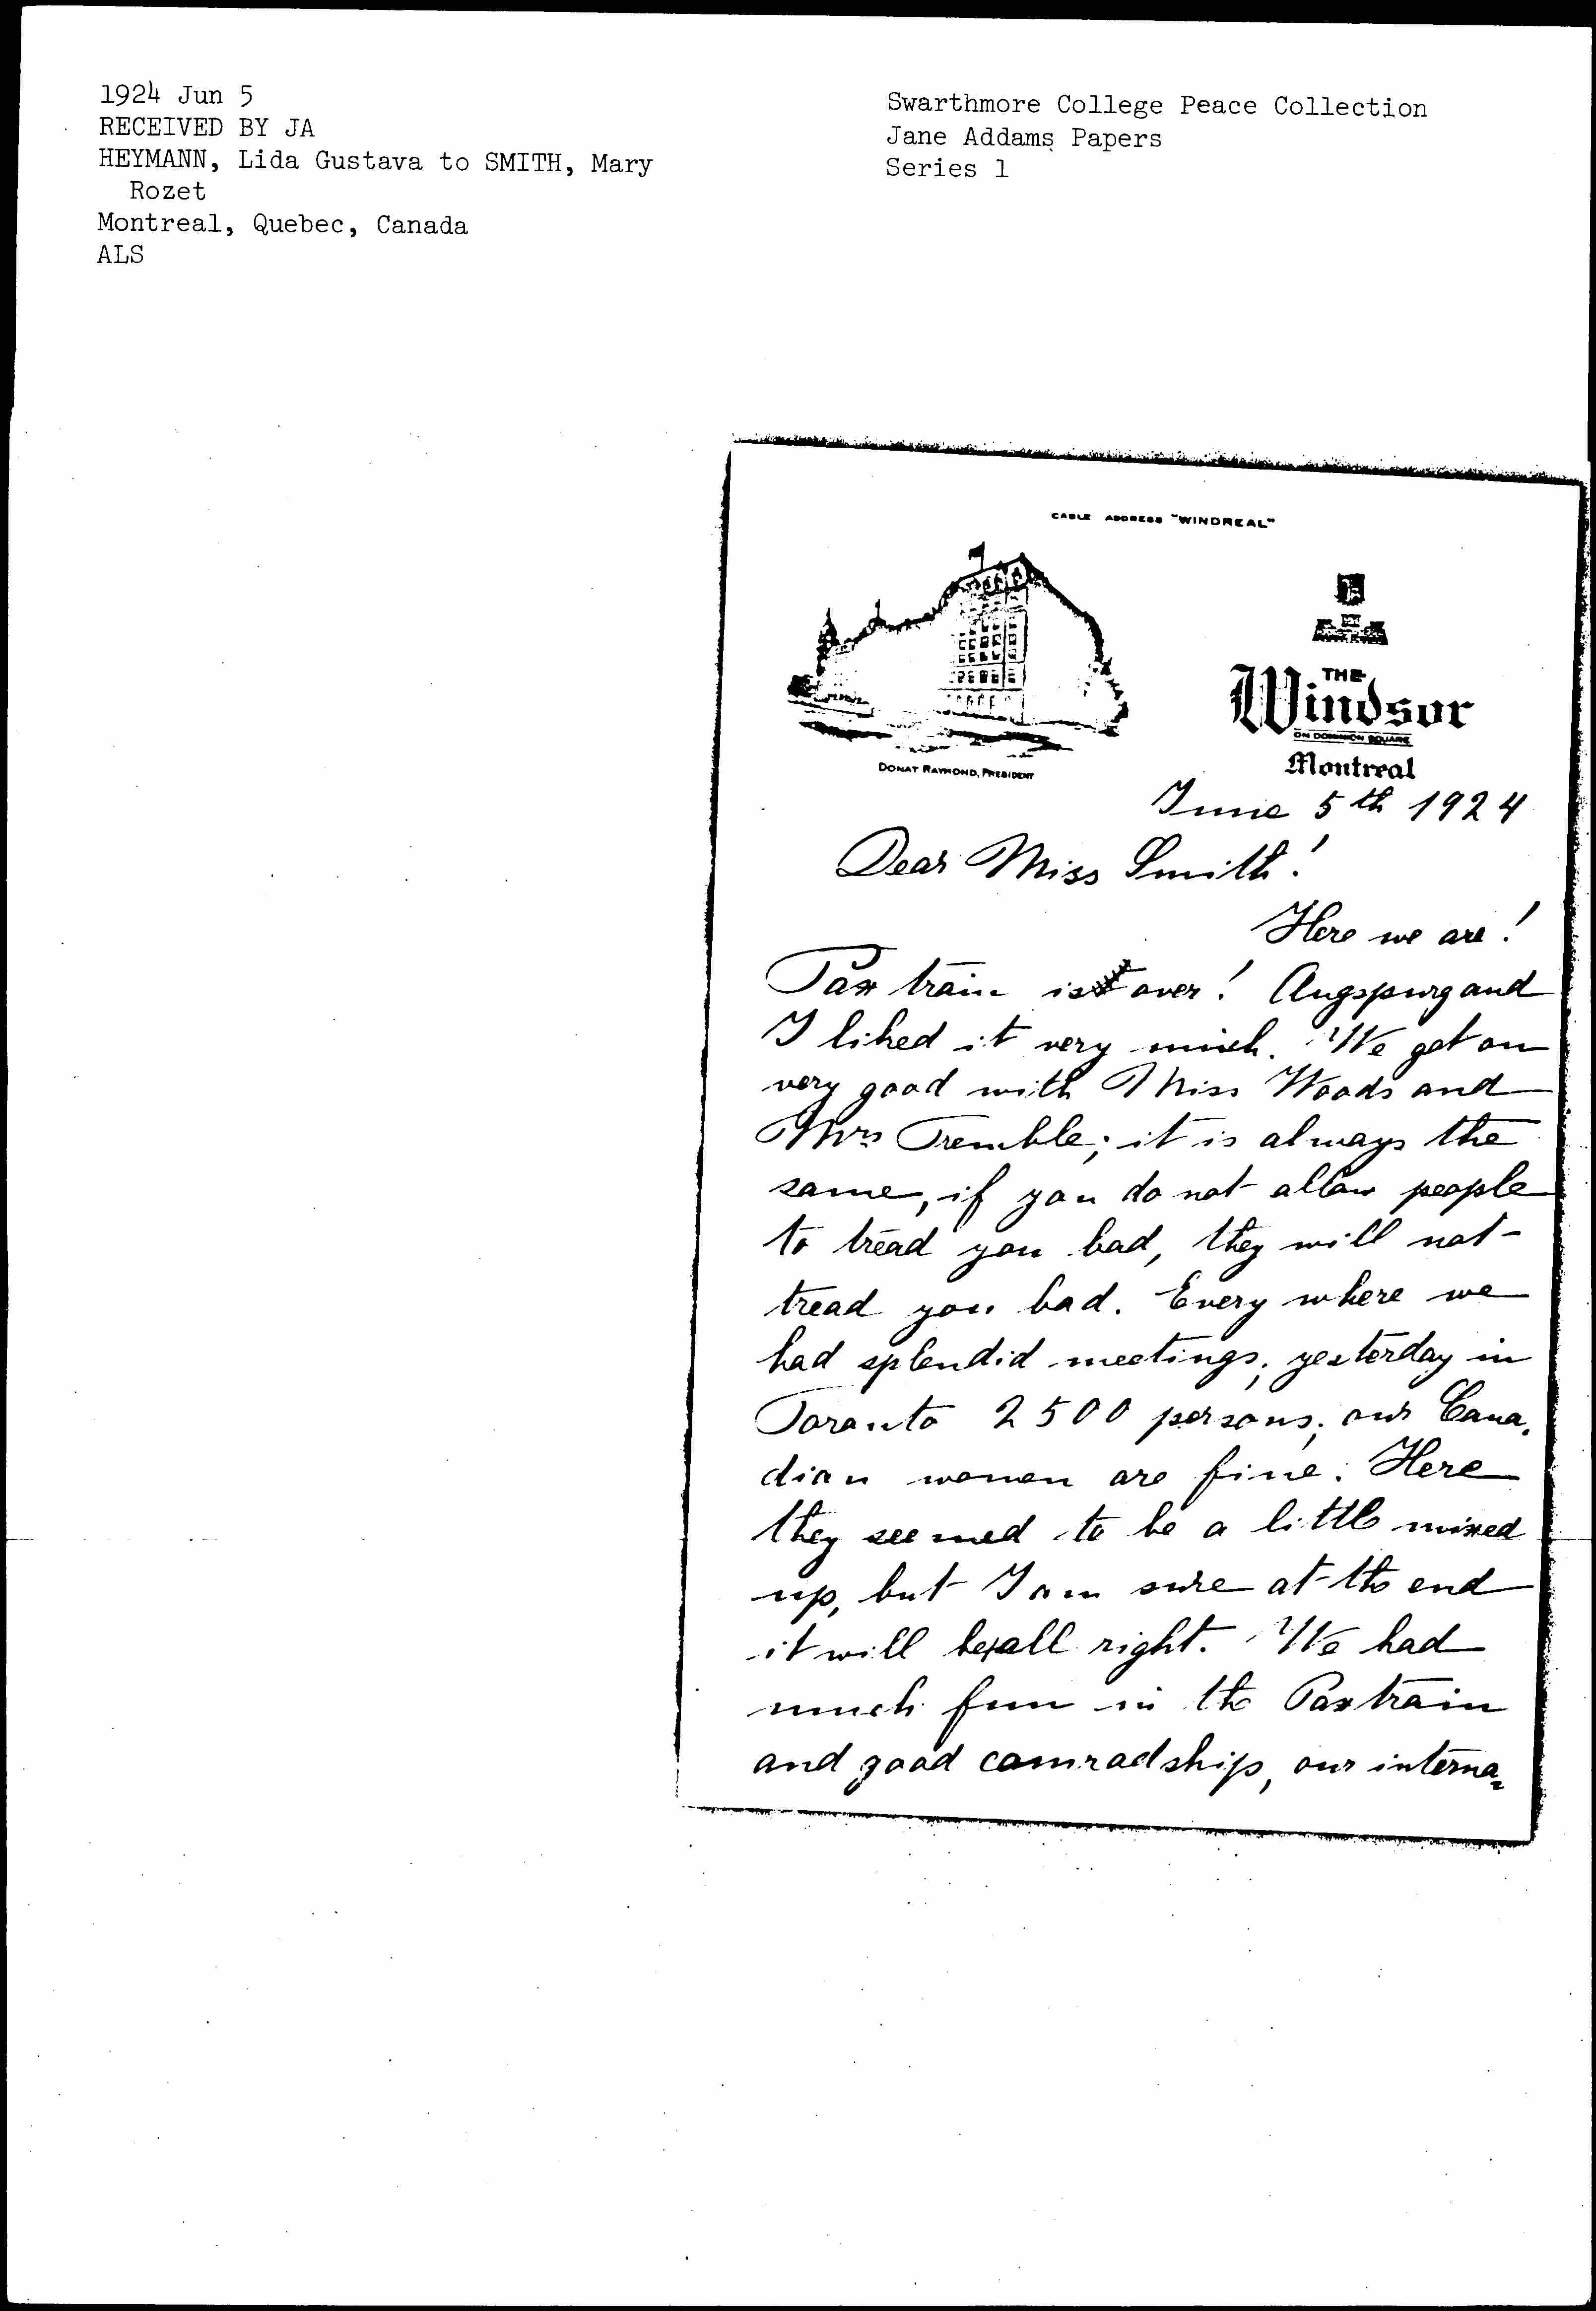 1924 Jun 5
RECEIVED BY JA
HEYMANN, Lida Gustava to SMITH, Mary
Rozet
Montreal, Quebec, Canada
ALS
Swarthmore College Peace Collection
Jane Addams Papers
Series 1
CABLE ADDRESS "WINDREAL"
THE
Windsor
ON DOMINION SQUARE
Montreal
DONAT RAYMOND, PRESIDENT
June 5th 1924
Dear Miss Smith!
Here we are!
Pax train is over! Augspurg and
I liked it very much. We get on
very good with Miss Woods and
Mrs Tremble; it is always the
same, if you do not allow people
to tread you bad, they will not
tread you bad. Every where we
had splendid meetings; yesterday in
Toronto 2500 persons; our Cana-
dian women are fine. Here
they seemed to be a little mixed
up, but I am sure at the end
it will be all right. We had
much fun in the Paxtrain
and good comradship, our interna=